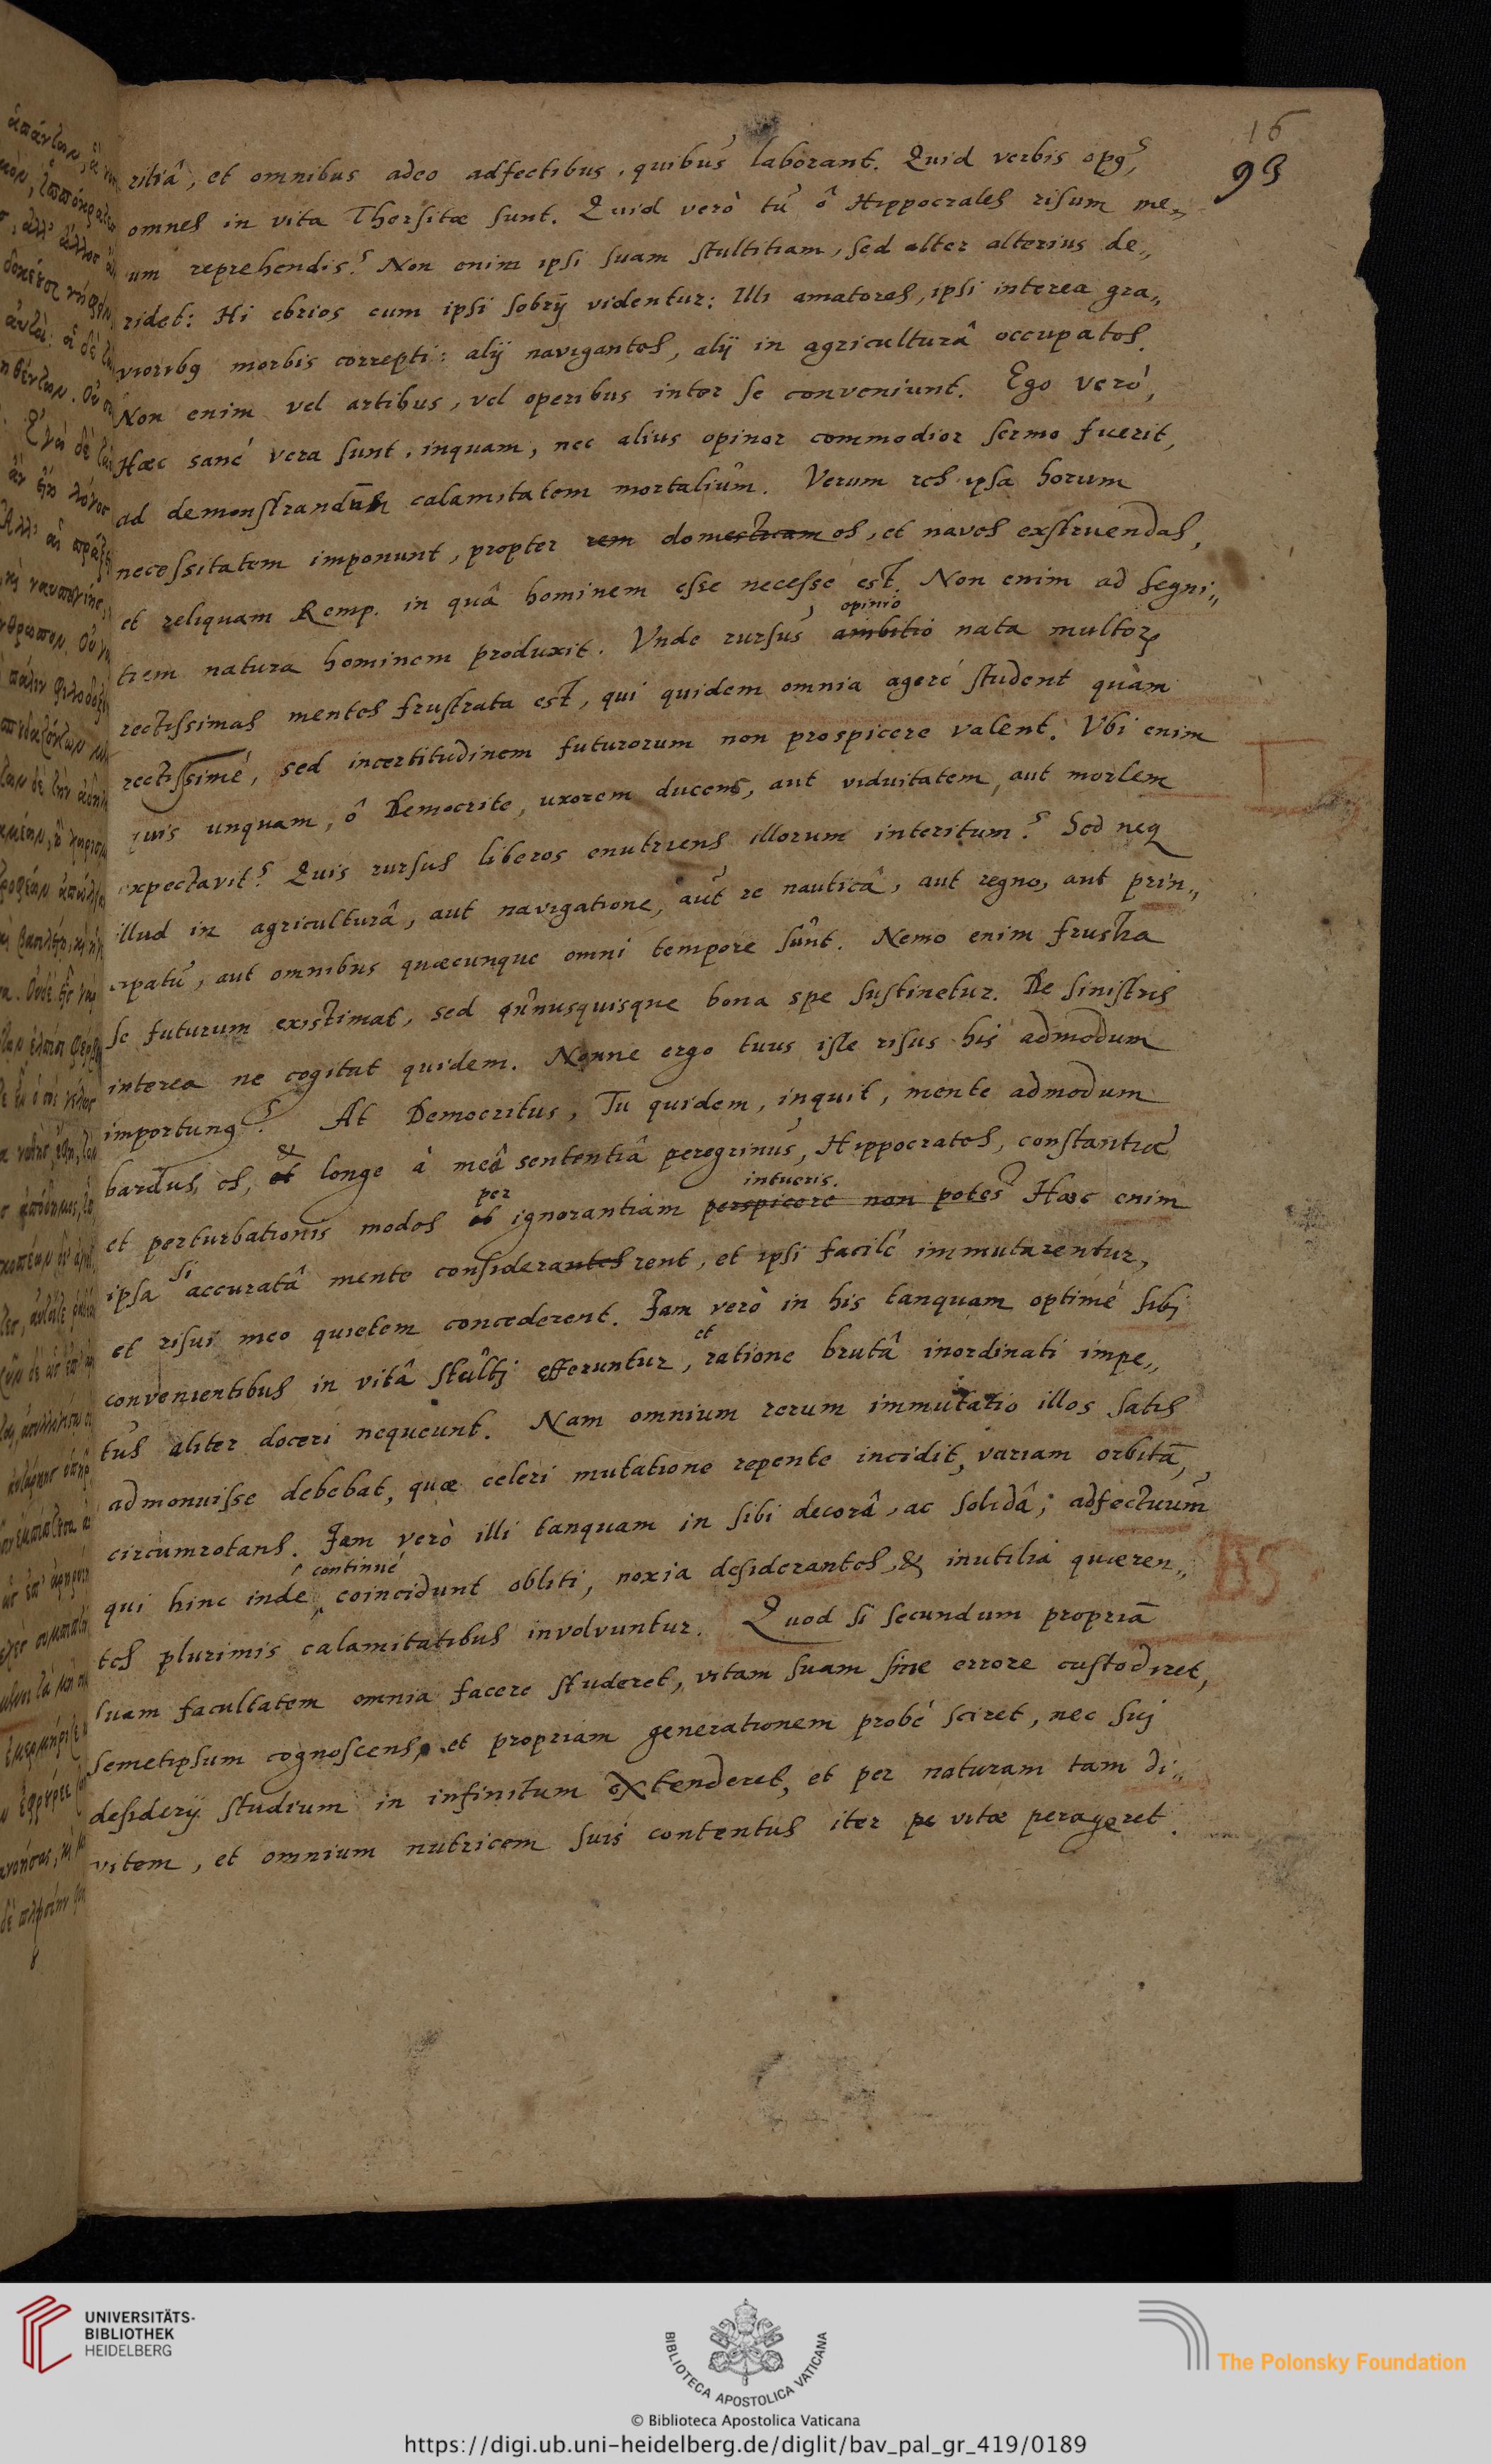 16
93
ritiâ, et omnibus adeo adfectibus, quibus laborant. Quid verbis opꝰ?
omnes in vita Thersitæ sunt. Quid verò tu ô Hippocrates risum me„
um reprehendis? Non enim ipsi suam stultitiam, sed alter alterius de„
ridet: Hi ebrios cum ipsi sobrij videntur: Illi amatores, ipsi interea gra„
vioribꝰ morbis correpti: alij navigantes, alij in agriculturâ occupatos.
Non enim vel artibus, vel operibus inter se conveniunt. Ego verò,
Hæc sané vera sunt, inquam, nec alius opinor commodior sermo fuerit,
ad demonstrandum calamitatem mortalium. Verum res ipsa horum
necessitatem imponunt, propter rem domesticam os, et naves exstruendas,
et reliquam Remp. in quâ hominem esse necesse est. Non enim ad segni„
opinio
tiem natura hominem produxit. Vnde rursus ambitio nata multoꝝ
rectissimas mentes frustrata est, qui quidem omnia ageré student quàm
rectissimé, sed incertitudinem futurorum non prospicere valent. Vbi enim
quis unquam, ô Democrite, uxorem ducens, aut viduitatem, aut mortem
expectavit? Quis rursus liberos enutriens illorum interitum? Sed neq
illud in agriculturâ, aut navigatione, aut re nauticâ, aut regno, aut prin„
cipatu, aut omnibus quæcunque omni tempore sunt. Nemo enim frustra
se futurum existimat, sed unusquisque bona spe sustinetur. De sinistris
interea ne cogitat quidem. Nonne ergo tuus iste risus his admodum
importunꝰ? At Democritus, Tu quidem, inquit, mente admodum
&
bardus es, et longe à meâ sententiâ peregrinus, Hippocrates, constantiæ
per intueris.
et perturbationis modos ob ignorantiam perspicere non potes? Hæc enim
si
ipsa accuratâ mente considerantes rent, et ipsi facilé immutarentur,
et risui meo quietem concederent. Jam verò in his tanquam optimé sibi
et
convenientibus in vitâ stulti efferuntur, ratione brutâ inordinati impe„
tus aliter doceri nequeunt. Nam omnium rerum immutatio illos satis
admonuisse debebat, quæ celeri mutatione repente incidit, variam orbitā,
circumrotans. Jam verò illi tanquam in sibi decorâ, ac solidâ; adfectuum
continué
qui hinc inde coincidunt obliti, noxia desiderantes, & inutilia quæren„
tes plurimis calamitatibus involvuntur. Quod si secundum propriā
suam facultatem omnia facere studeret, vitam suam sine errore custodiret,
semetipsum cognoscens, et propriam generationem probé sciret, nec sui
desiderij studium in infinitum extenderet, et per naturam tam di„
vitem, et omnium nutricem suis contentus iter pe vitæ perageret.
UNIVERSITÄTS-
BIBLIOTHEK
HEIDELBERG
BIBLIOTECA APOSTOLICA VATICANA
The Polonsky Foundation
© Biblioteca Apostolica Vaticana
https://digi.ub.uni-heidelberg.de/diglit/bav_pal_gr_419/0189